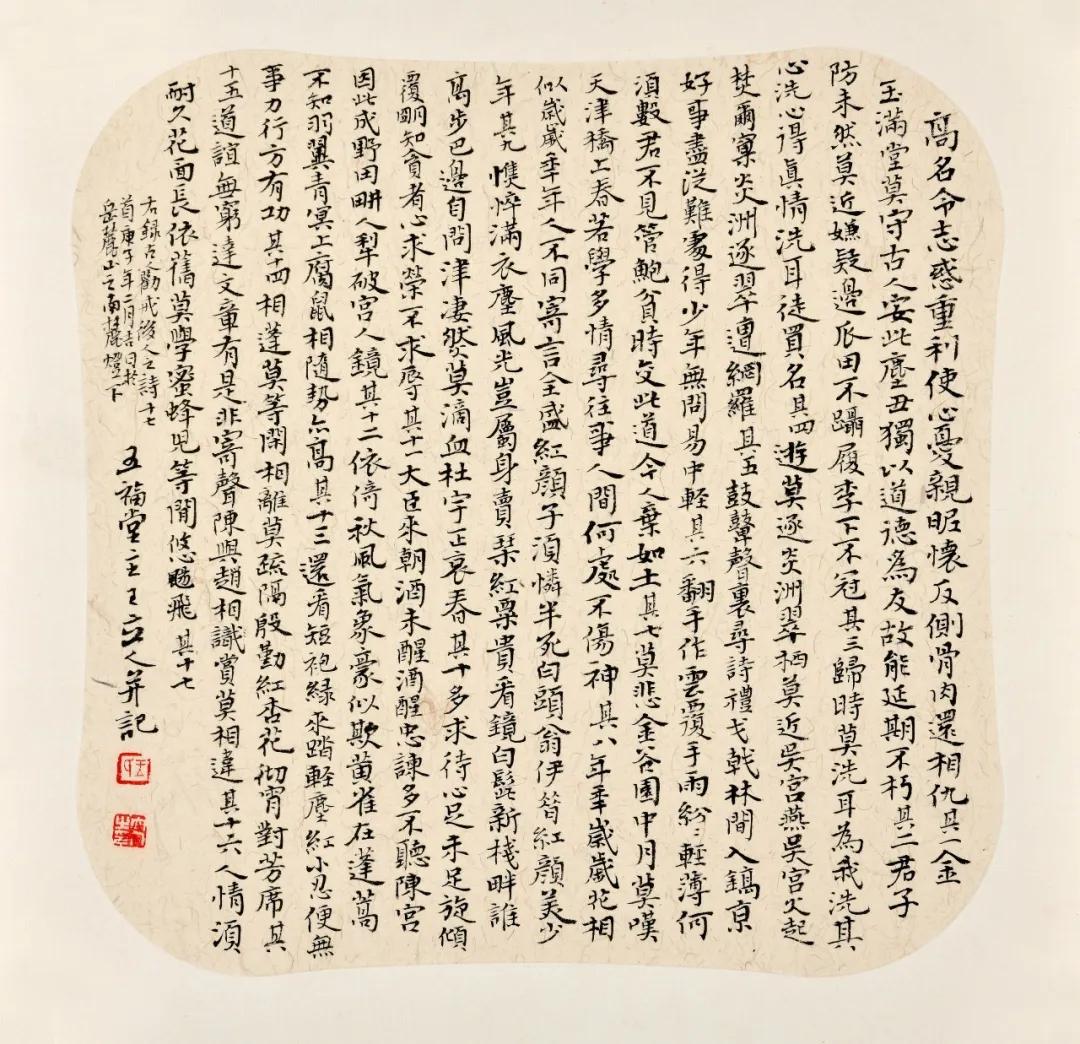 高名令志惑重利使心憂親昵懷反側骨肉還相仇其一金
玉滿堂莫守古人安此麈丑獨以道德為友故能延期不朽其二君子
防未然莫近嫌疑邊瓜田不躡履李下不冠其三歸時莫洗耳為我洗其
心洗心得真情洗耳徒買名其四遊莫逐炎洲翠栖莫近吳宮燕吳宮火起
焚爾窠炎洲逐翠遭網羅其五鼓鼙聲裏尋詩禮戈戟林間入鎬京
好事盡從難處得少年無問易中輕其六翻手作雲覆手雨紛〻輕薄何
須數君不見管鮑貧時交此道今人棄如土其七莫悲金谷園中月莫嘆
天津橋上春若學多情尋往事人間何處不傷神其八年年歲歲花相
似歲歲年年人不同寄言全盛紅顏子須憐半死白頭翁伊昔紅顏美少
年其九憔悴滿衣塵風光豈屬身賣琴紅粟貴看鏡白髭新棧畔誰
高步巴邊自問津凄然莫滴血杜宇正哀春其十多求待心足未足旋傾
覆明知貪者心求榮不求辱其十一大臣來朝酒未醒酒醒忠諫多不聽陳宮
因此成野田耕人犁破宮人鏡其十二依倚秋風氣象豪似欺黃雀在蓬蒿
不知羽翼青冥上腐鼠相隨勢亦高其十三還看短袍綠來踏輕塵紅小忍便無
事力行方有功其十四相逢莫等閑相離莫疏隔殷勤紅杏花徹宵對芳席其
十五道誼無窮達文章有是非寄聲陳與趙相識賞莫相違其十六人情須
耐久花面長依舊莫學蜜蜂兒等閒悠颺飛其十七
右錄古人勸戒後人之詩十七
首庚子年二月吉日於
岳麓山之南麓燈下
五福堂主王立人并記